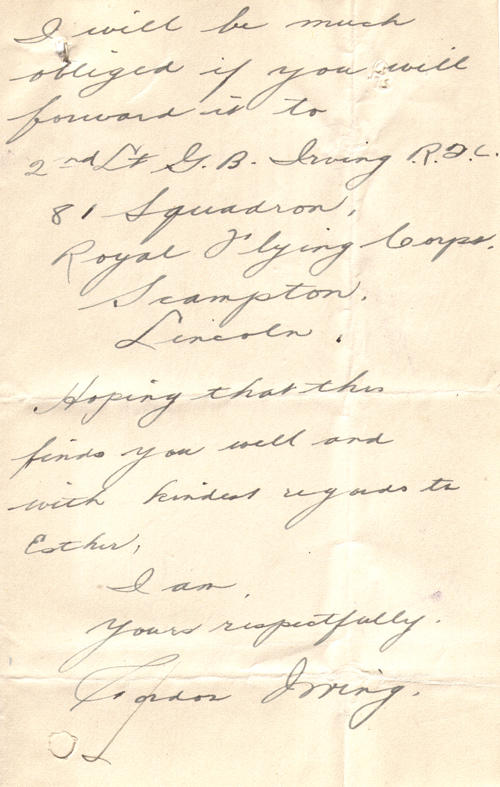 I will be much
obliged if you will
forward it to
2nd Lt G. B. Irving R.F.C.
81 Squadron,
Royal Flying Corps.
Scampton.
Lincoln.
Hoping that this
finds you well and
with kindest regards to
Esther,
I am,
Yours respectfully.
Gordon Irving.